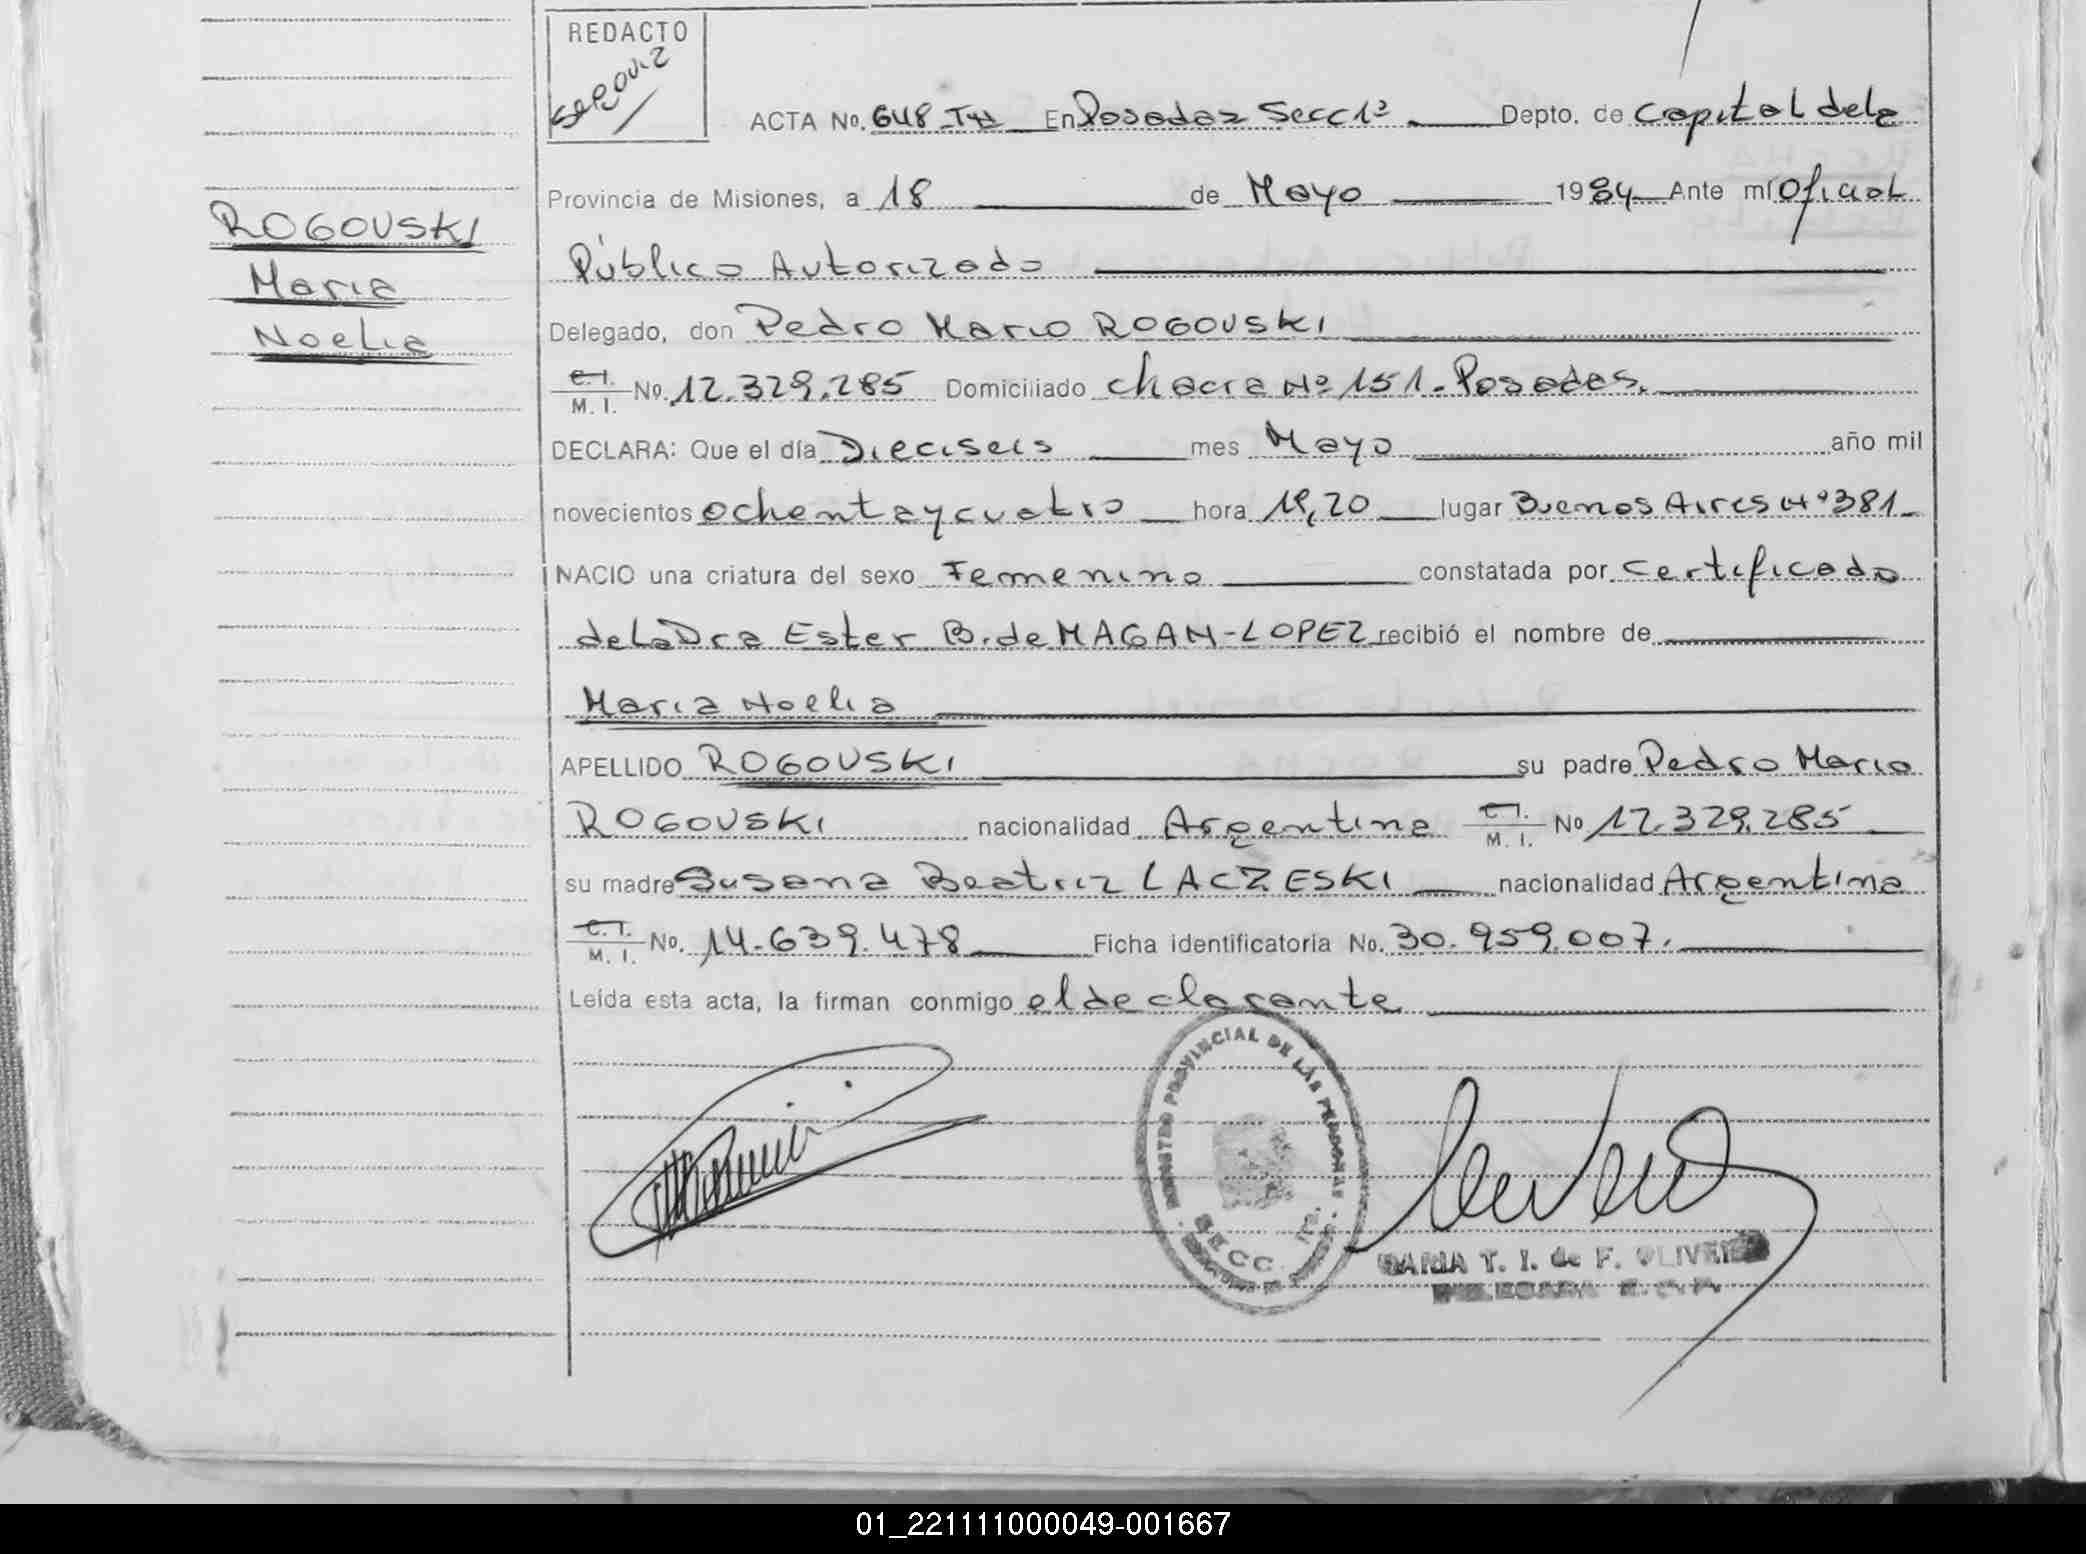 REDACTO
ACTA No. 648 En Posadas Secc 1ª Depto. de Capital de la
Provincia de Misiones, a 18 de Mayo 1984 Ante mí Oficial
Público Autorizado
Delegado, don Pedro Mario ROGOVSKI
C. I. M. I. No. 12.329.285 Domiciliado chacra Nº 151 - Posadas.
DECLARA: Que el día Dieciseis mes Mayo año mil
novecientos ochenta y cuatro hora 19,20 lugar Buenos Aires Nº 381
NACIO una criatura del sexo Femenino constatada por certificado
de la Dra Ester B. de MAGAN-LOPEZ recibió el nombre de
Maria Noelia
APELLIDO ROGOVSKI su padre Pedro Mario
ROGOVSKI nacionalidad Argentina C. I. M. I. No 12.329.285
su madre Susana Beatriz LACZESKI nacionalidad Argentina
C. I. M. I. No. 14.639.478 Ficha identificatoria No. 30.959.007.
Leída esta acta, la firman conmigo el declarante
ROGOVSKI
Maria
Noelia
REGISTRO PROVINCIAL DE LAS PERSONAS
SECC. 1ra.
T. I. de F. OLIVEIRA
DELEGADA R.C.P.
01_221111000049-001667